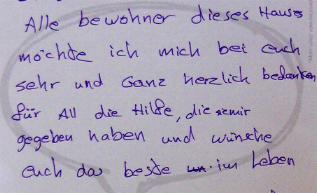 Alle bewohner dieses Hauses
möchte ich mich bei euch
sehr und Ganz herzlich bedanken
für All die Hilfe, die semir
gegeben haben und wünsche
euch das beste im Leben